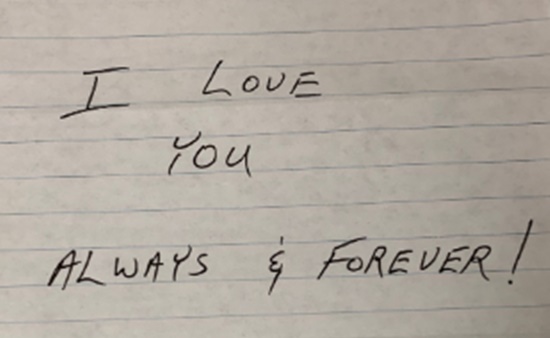 I LOVE
YOU
ALWAYS & FOREVER!